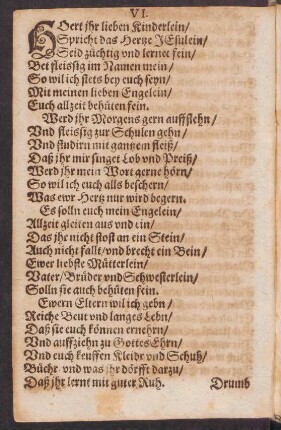 VI.
HOert jhr lieben Kinderlein/
Spricht das Hertze JEsulein/
Seid züchtig vnd lernet fein/
Bet fleissig im Namen mein/
So wil ich stets bey euch seyn/
Mit meinen lieben Engelein/
Euch allzeit behüten fein.
Werd jhr Morgens gern auffstehn/
Vnd fleissig zur Schulen gehn/
Vnd studirn mit gantzem fleiß/
Daß jhr mir singet Lob vnd Preiß/
Werd jhr mein Wort gerne hörn/
So wil ich euch alls beschern/
Was ewr Hertz nur wird begern.
Es solln euch mein Engelein/
Allzeit gleiten aus vnd ein/
Das jhr nicht stost an ein Stein/
Auch nicht fallt/ vnd brecht ein Bein/
Ewer liebste Mütterlein/
Vater/ Brüder vnd Schwesterlein/
Solln sie auch behüten fein.
Ewern Eltern wil ich gebn/
Reiche Beut vnd langes Lebn/
Daß sie euch können ernehrn/
Vnd auffziehn zu Gottes Ehrn/
Vnd euch keuffen Kleidr vnd Schuh/
Büchr vnd was jhr dörfft darzu/
Daß jhr lernt mit guter Ruh. Drumb